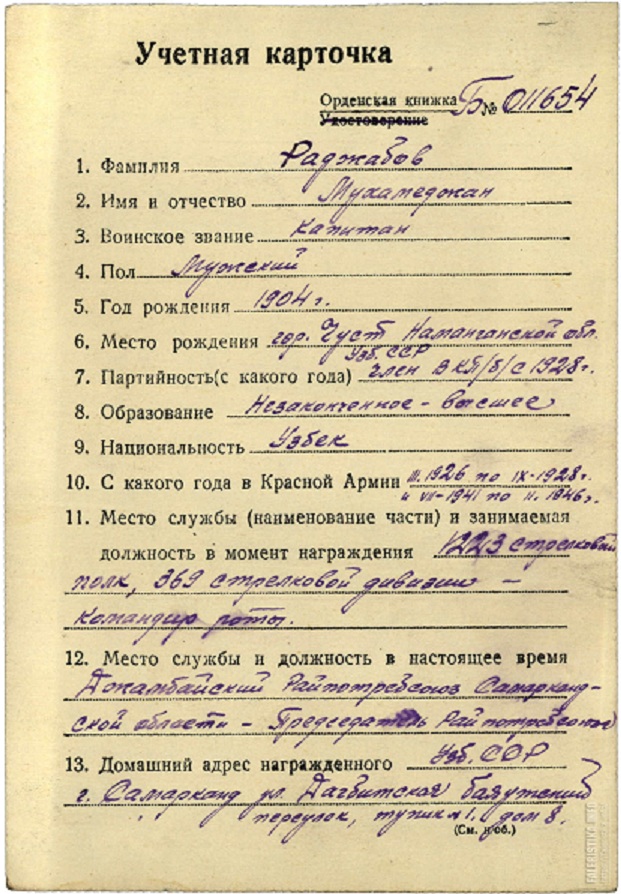 Учетная карточка
Орденская книжка Б № 011654
Удостоверение
1. Фамилия Раджабов
2. Имя и отчество Мухамеджан
3. Воинское звание Капитан
4. Пол Мужский
5. Год рождения 1904 г.
6. Место рождения гор. Чуст Наманганской обл.
Узб. ССР
7. Партийность(с какого года) член ВКП/б/ с 1928 г.
8. Образование Незаконченное - высшее
9. Национальность Узбек
10. С какого года в Красной Армии III.1926 по IX-1928 г.
и VII-1941 по II. 1946 г.
11. Место службы (наименование части) и занимаемая
должность в момент награждения 1223 стрелковый
полк, 369 стрелковой дивизии -
Командир роты.
12. Место службы и должность в настоящее время
Джамбайский Райпотребсоюз Самарканд-
ской области - Председатель Райпотребсоюза
13. Домашний адрес награжденного Узб. ССР
г. Самарканд ул. Дагбитская
переулок, тупик №1. дом 8.
(См. н об.)